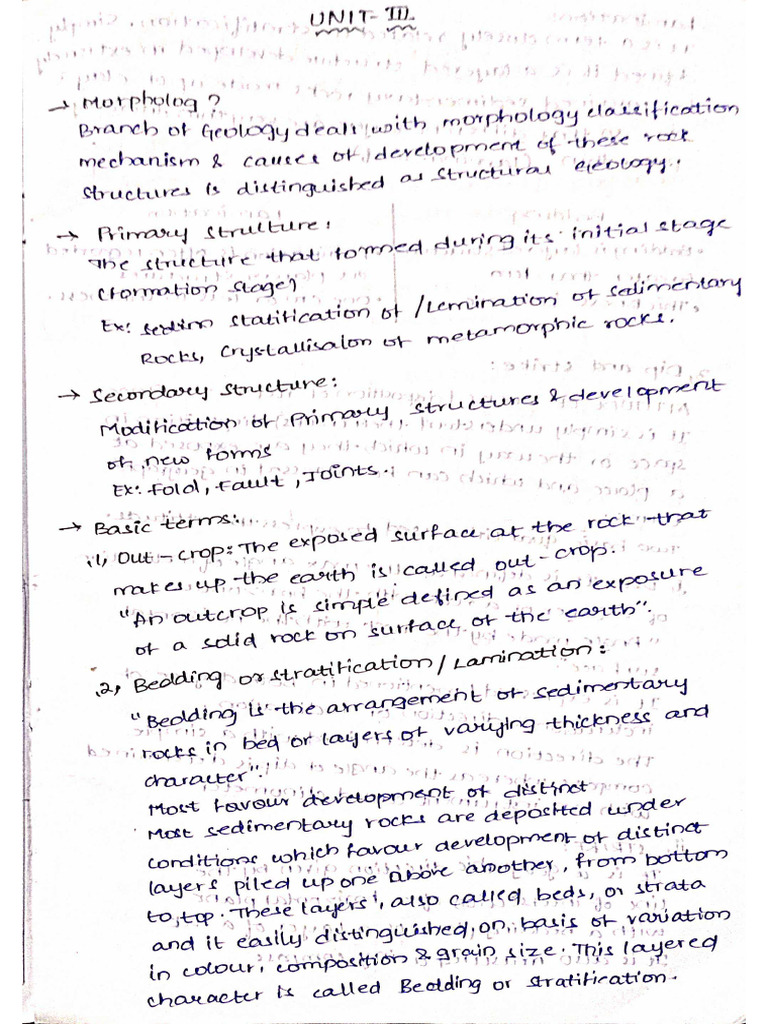 UNIT-III.
→ Morpholog?
Branch of Geology deals with morphology classification
mechanism & causes of development of these rock
structures is distinguished as structural Geology.
→ Primary structure:
The structure that formed during its initial stage
(formation stage)
Ex: statification of /Lemination of sedimentary
Rocks, crystallisaion of metamorphic rocks.
→ Secondary structure:
Modification of Primary structures & development
of new forms
Ex: Fold, Fault, Joints.
→ Basic terms:
1, Out-crop: The exposed surface at the rock that
makes up the earth is called out-crop.
"An outcrop is simple defined as an exposure
of a solid rock on surface of the earth".
2, Bedding or stratification/Lamination:
"Bedding is the arrangement of sedimentary
rocks in bed or layers of varying thickness and
character".
Most favour development of distinct
Most sedimentary rocks are deposited under
conditions which favour development of distinct
layers piled up one above another, from bottom
to top. These layers, also called beds, or strata
and it easily distinguished on basis of variation
in colour, composition & grain size. This layered
character is called Bedding or stratification.